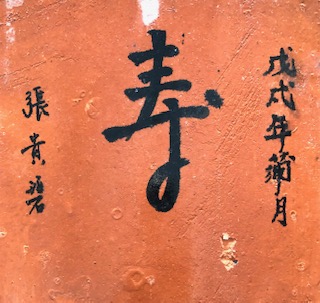 戊戌年蒲月
寿
張貴碧